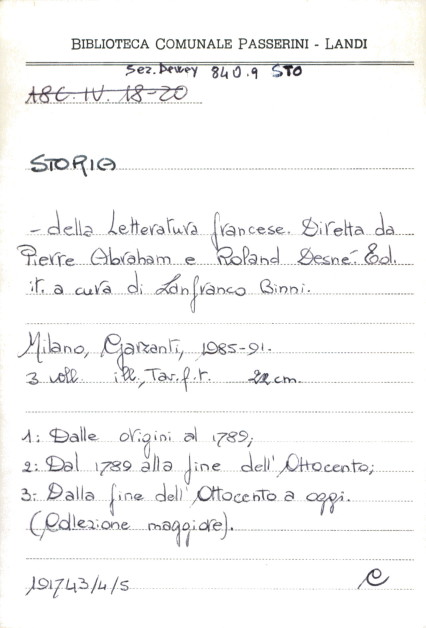 BIBLIOTECA COMUNALE PASSERINI - LANDI
Sez. Dewey 840.9 STO
ABC. IV. 18-20
STORIA
- della Letteratura francese. Diretta da
Pierre Abraham e Roland Desné. Ed.
it. a cura di Lanfranco Binni.
Milano, Garzanti, 1985-91.
3 voll ill., Tav. f. t. 22 cm.
1: Dalle origini al 1789;
2: Dal 1789 alla fine dell'Ottocento;
3: Dalla fine dell'Ottocento a oggi.
(Collezione maggiore).
191743/4/5 C